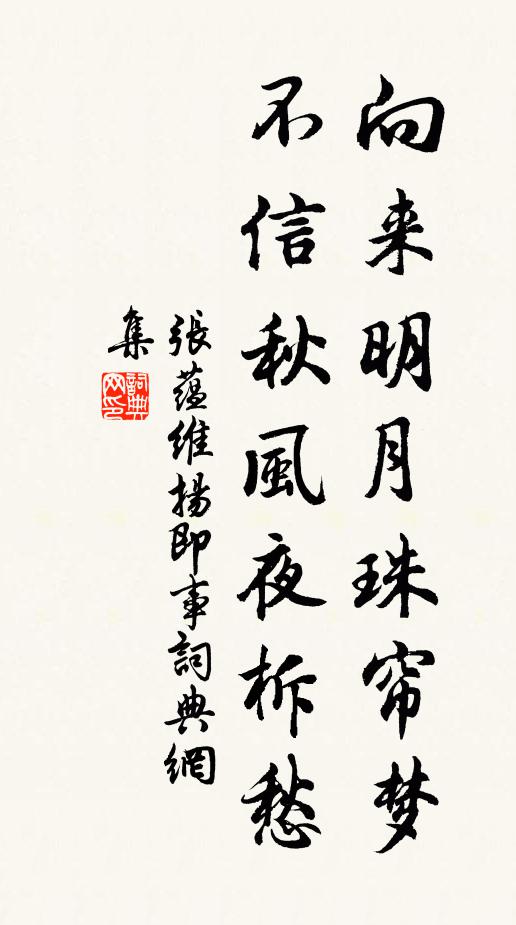 向来明月珠帘梦
不信秋風夜柝愁
張蕴維揚即事詞典網
集
詞典
网印